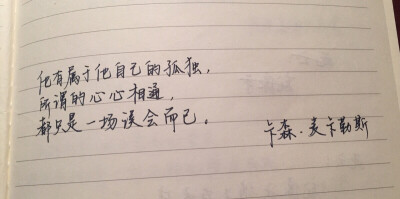 他有属于他自己的孤独，
所谓的心心相通，
都只是一场误会而已。
卡森·麦卡勒斯